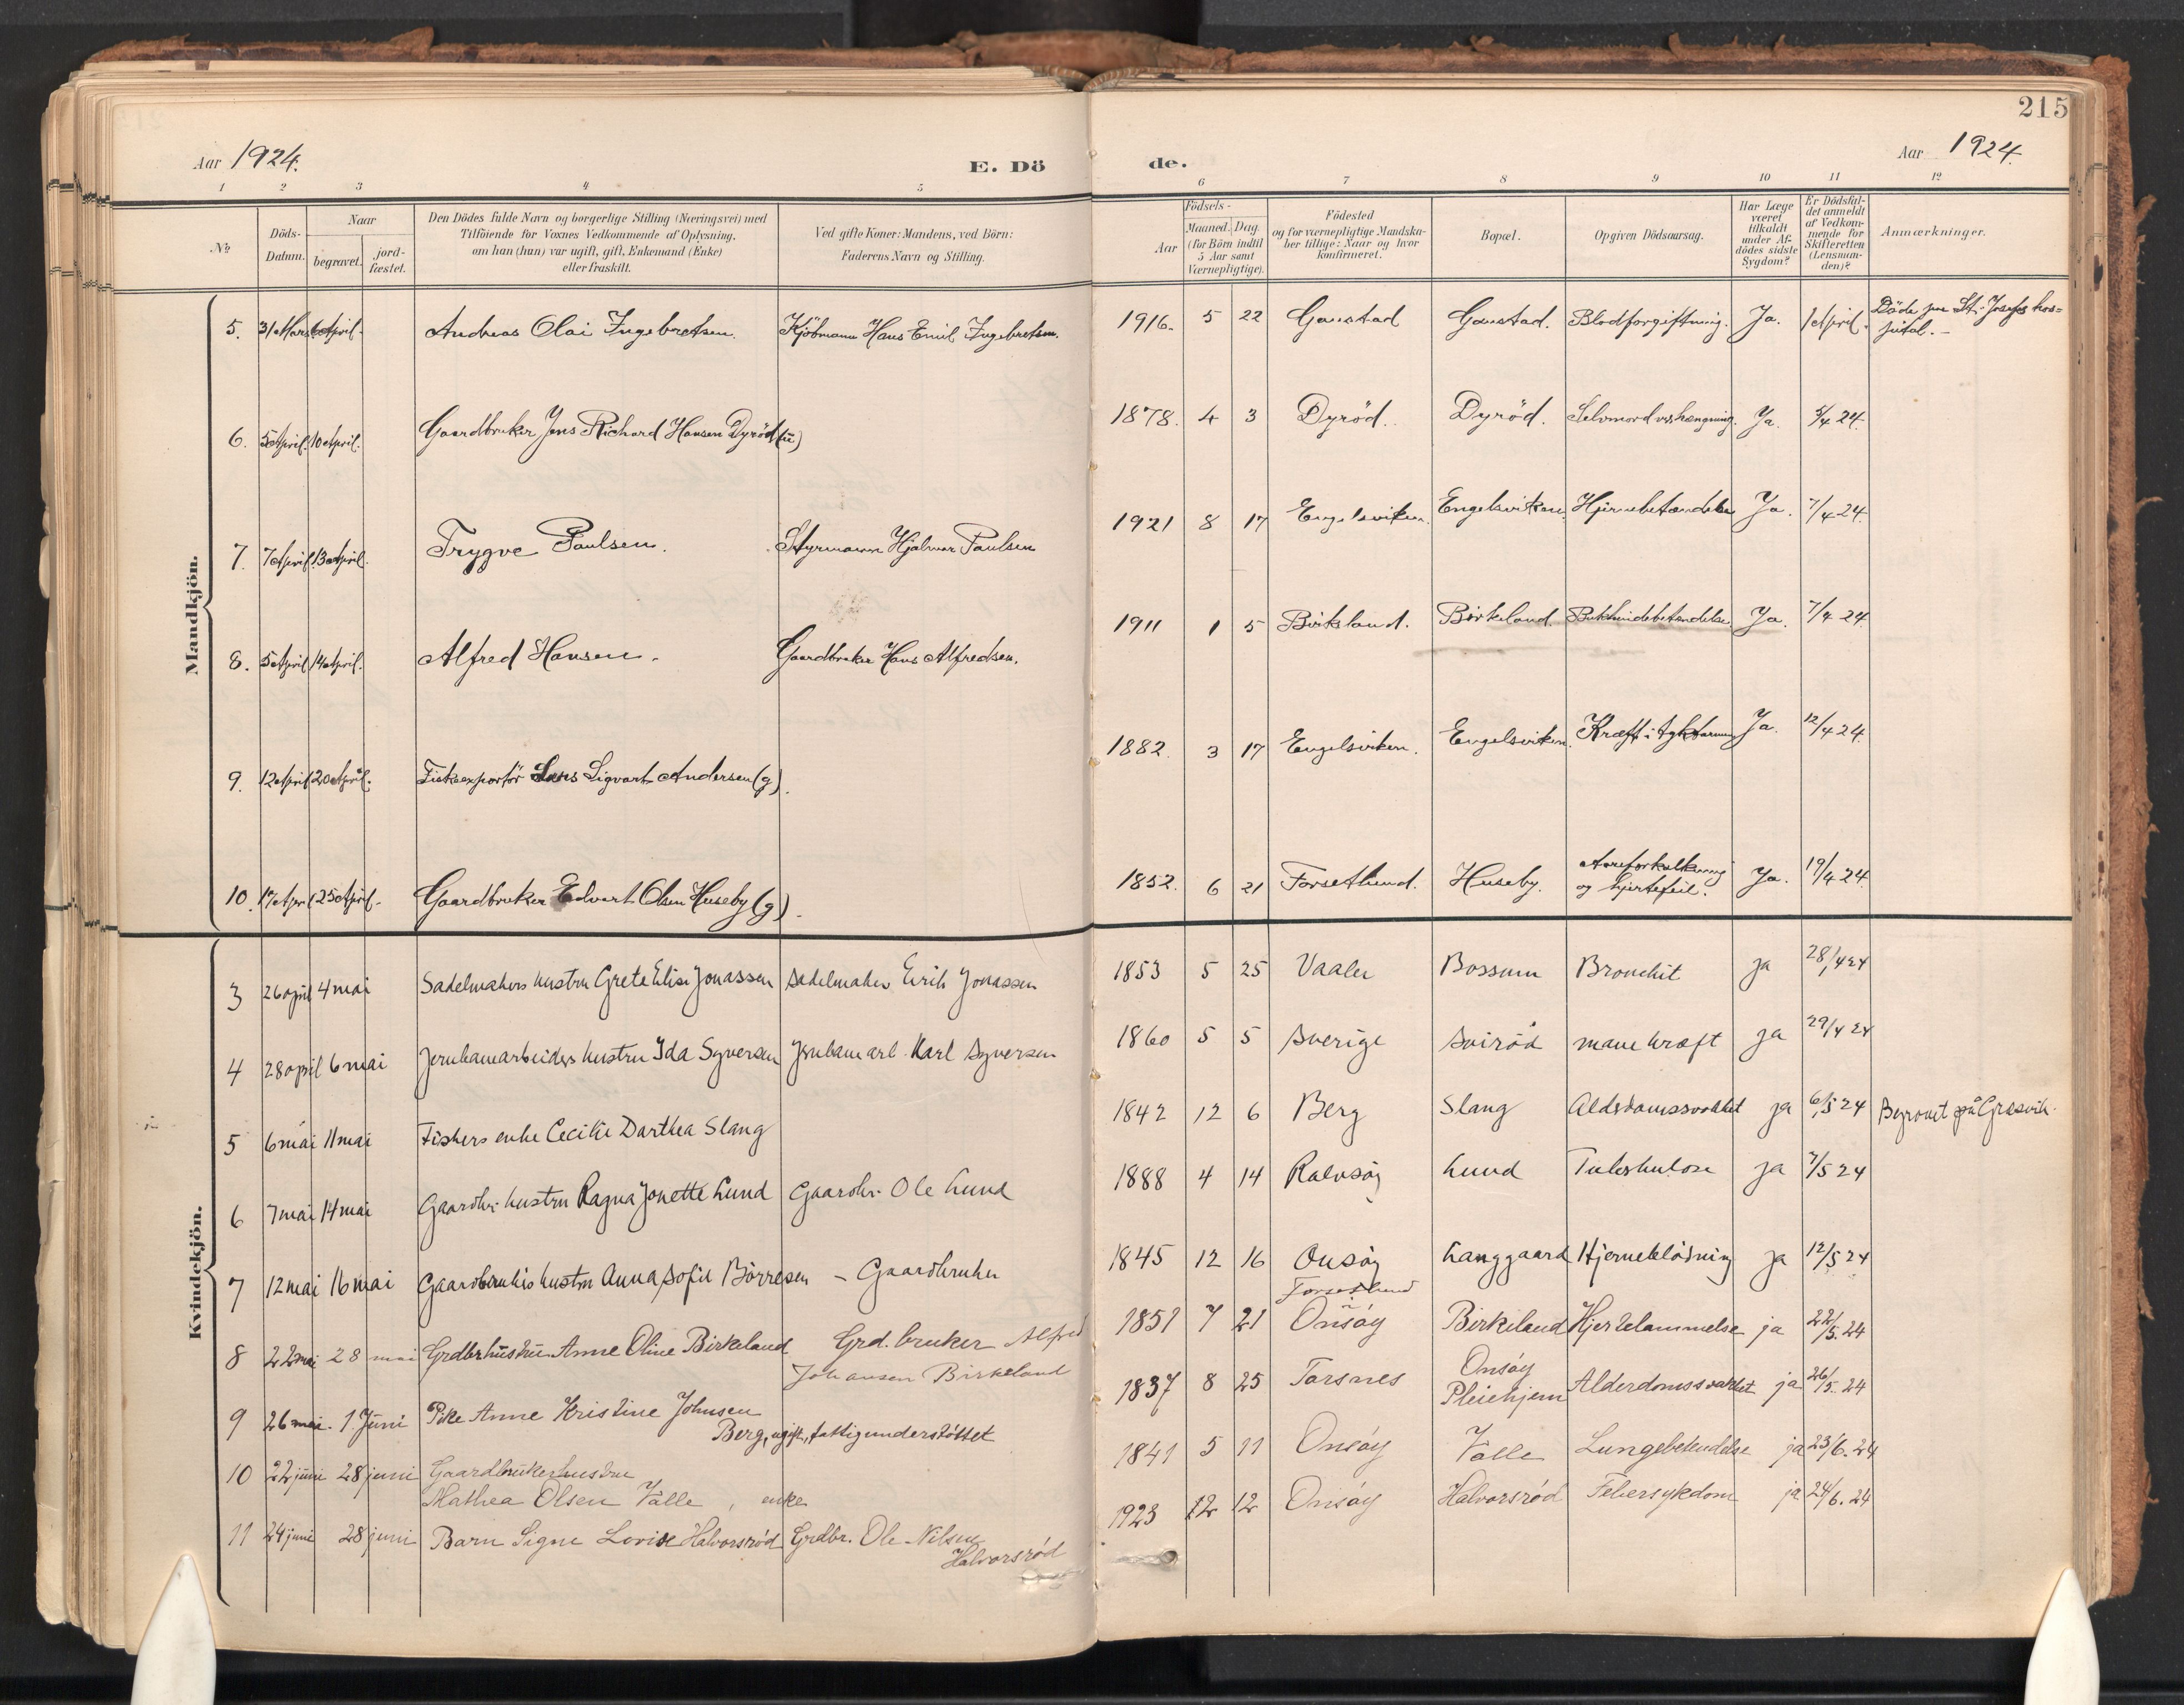 215
Aar 1924.
E. Dö
de.
Aar 1924.
1 2 3 4 5 6 7 8 9 10 11 12
No
Döds-
Datum.
Naar
begravet.
jord-
fæstet.
Den Dödes fulde Navn og borgerlige Stilling (Næringsvei) med
Tilföiende for Voxnes Vedkommende af Oplysning,
om han (hun) var ugift, gift, Enkemand (Enke)
eller fraskilt.
Ved gifte Koner: Mandens, ved Börn:
Faderens Navn og Stilling.
Födsels-
Aar
Maaned.
Dag.
(for Börn indtil
5 Aar samt
Værnepligtige).
Födested
og for værnepligtige Mandska-
ber tillige: Naar og hvor
konfirmeret.
Bopæl.
Opgiven Dödsaarsag.
Har Læge
været
tilkaldt
under Af-
dödes sidste
Sygdom?
Er Dödsfal-
det anmeldt
af Vedkom-
mende for
Skifteretten
(Lensman-
den)?
Anmærkninger.
Mandkjön.
5. 31 Mars April Andreas Olai Ingebretsen. Kjöbmann Hans Emil Ingebretsen. 1916. 5 22 Gaustad Gaustad. Blodforgiftning. Ja. 1 April. Döde paa St. Josefs hos=
pital.
6. 5 April. 10 April. Gaardbruker Jens Richard Hansen Dyröd (u) 1878. 4 3 Dyröd. Dyröd. Selvmord ved hængning. Ja. 5/4 24.
7. 7 April 13 April. Trygve Paulsen. Styrmann Hjalmar Paulsen 1921 8 17 Engelsviken. Engelsviken. Hjernebetændelse Ja. 7/4 24.
8. 5 April 14 April. Alfred Hansen. Gaardbruker Hans Alfredsen. 1911 1 5 Birkeland. Birkeland. Bukhindebetændelse. Ja. 7/4 24.
9. 12 April 20 April. Fiskeexportör Lars Sigvart Andersen (g). 1882. 3 17 Engelsviken. Engelsviken. Kræft i tyktarmen Ja. 12/4 24.
10. 17 April 25 April. Gaardbruker Edvart Olsen Huseby (g). 1852. 6 21 Forsetlund. Huseby. Aareforkalkning
og hjertefeil. Ja. 19/4 24.
Kvindekjön.
3 26 april 4 mai Sadelmakers hustru Grete Elise Jonassen Sadelmaker Erik Jonassen 1853 5 25 Vaaler Bossum Bronchit ja 28/4 24
4 28 april 6 mai Jernbanearbeiders hustru Ida Syversen Jernbanearb. Karl Syversen 1860 5 5 Sverige Svirød mavekræft ja 29/4 24
5 6 mai 11 mai Fiskers enke Cecilie Darthea Slang 1842 12 6 Berg Slang Alderdomssvakhet ja 6/5 24 Begravet på Gresvik.
6 7 mai 14 mai Gaardbr. hustru Ragna Jonette Lund Gaardbr. Ole Lund 1888 4 14 Rolvsöy Lund Tuberkulose ja 7/5 24
7 12 mai 16 mai Gaardbrukers hustru Anna Sofie Börresen – Gaardbruker 1845 12 16 Onsøy Langgaard Hjerneblödning ja 12/5 24
8 22 mai 28 mai Grdbrhustru Anne Oline Birkeland Grd.bruker Alfred
Johansen Birkeland 1851 7 21 Forsetlund
Onsøy Birkeland Hjertelammelse ja 22/5. 24
9 26 mai. 1. Juni Pike Anne Kristine Johnsen
Berg, ugift, fattigunderstøttet 1837 8 25 Torsnes Onsøy
Pleiehjem Alderdomssvakhet ja 26/5. 24
10 22 juni 28 juni Gaardbrukerhustru
Mathea Olsen Valle, enke 1841 5 11 Onsøy Valle Lungebetendelse ja 23/6. 24
11 24 juni 28 juni Barn Signe Lovise Halvorsrød Grdbr. Ole Nilsen
Halvorsrød 1923 12 12 Onsøy Halvorsrød Febersykdom ja 24/6. 24